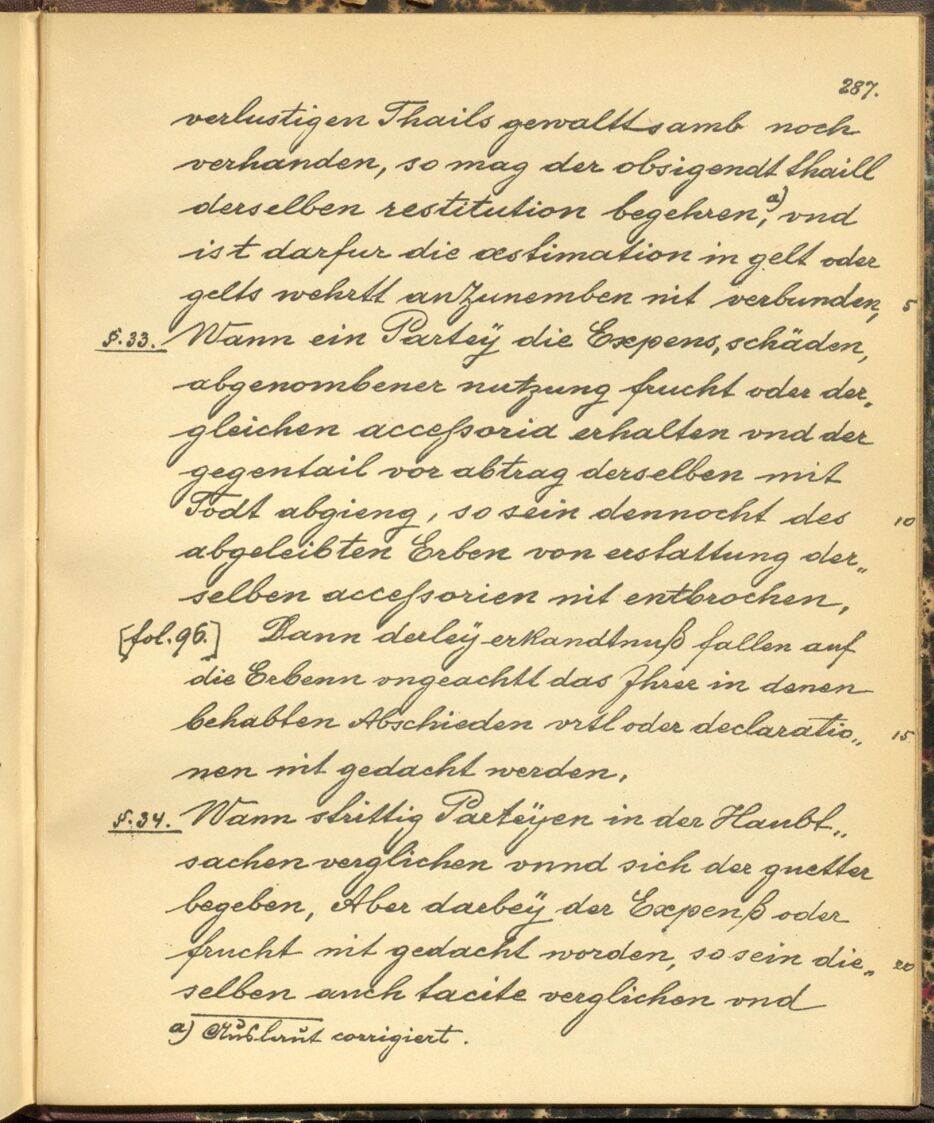 287.
verlustigen Thails gewalttsamb noch
verhanden, so mag der obsigendt thaill
derselben restitution begehren,a) vnd
ist darfur die æstimation in gelt oder
gelts wehrtt anzunemben nit verbunden, 5
§.33. Wann ein Partey̋ die Expens, schäden,
abgenombener nutzung frucht oder der„
gleichen accessoria erhalten vnd der
gegentail vor abtrag derselben mit
Todt abgieng, so sein dennocht des 10
abgeleibten Erben von erstattung der„
selben accessorien nit entbrochen,
[fol. 96.] Dann derley̋ erkandtnuß fallen auf
die Erbenn vngeachtt das Ihrer in denen
behabten Abschieden vrtl oder declaratio„ 15
nen nit gedacht werden,
§.34. Wann strittig Partey̋en in der Haubt„
sachen verglichen vnnd sich der guetter
begeben, Aber darbey̋ der Expenß oder
frucht nit gedacht worden, so sein die„ 20
selben auch tacite verglichen vnd
a) corrigiert.